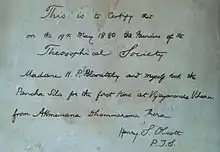 This is to Certify that
on the 19th May 1880 the Founders of the
Theosophical Society
Madame H. P. Blavatsky and myself took the
Pancha Sila for the first time at Vijayananda Vihara
from Akmeemana Dhammarama Thera
Henry S. Olcott
P.T.S.